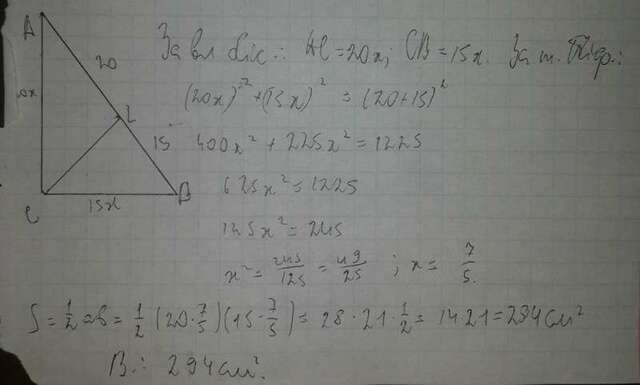 A
20
20x
L
15
C
15x
B
За вл. біс.: AC = 20x; CB = 15x. За т. Піф.:
(20x)² + (15x)² = (20+15)²
400x² + 225x² = 1225
625x² = 1225
125x² = 245
x² = 245/125 = 49/25 ; x = 7/5.
S = 1/2 ab = 1/2 (20·7/5)(15·7/5) = 28·21·1/2 = 14·21 = 294 см²
В.: 294 см².